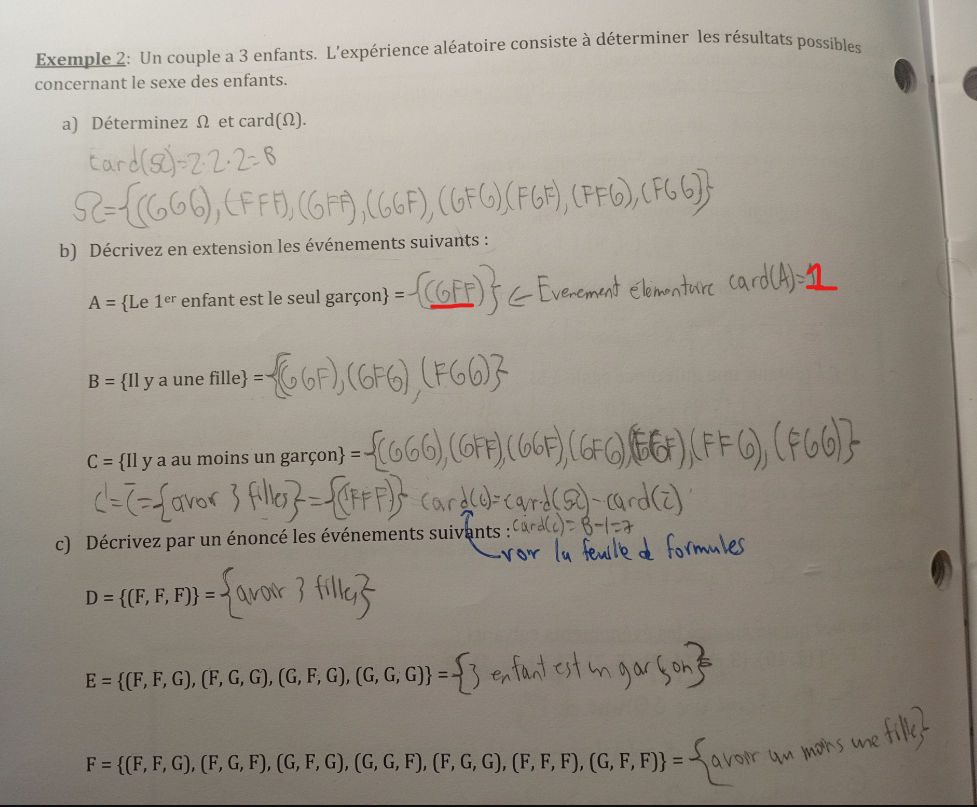 Exemple 2: Un couple a 3 enfants. L'expérience aléatoire consiste à déterminer les résultats possibles
concernant le sexe des enfants.
a) Déterminez Ω et card(Ω).
card(Ω)=2·2·2=8
Ω={(GGG),(FFF),(GFF),(GGF),(GFG)(FGF),(FFG),(FGG)}
b) Décrivez en extension les événements suivants :
A = {Le 1er enfant est le seul garçon} = {(GFF)} ← Evenement élementaire card(A)=1
B = {Il y a une fille} = {(GGF),(GFG),(FGG)}
C = {Il y a au moins un garçon} = {(GGG),(GFF),(GGF),(GFG),(FGF),(FFG),(FGG)}
C'=C̄={avoir 3 filles}={(FFF)} card(c)=card(Ω)-card(c̄)
card(c)=8-1=7
c) Décrivez par un énoncé les événements suivants :
voir la feuille de formules
D = {(F, F, F)} = {avoir 3 filles}
E = {(F, F, G), (F, G, G), (G, F, G), (G, G, G)} = {3 enfant est un garçon}
F = {(F, F, G), (F, G, F), (G, F, G), (G, G, F), (F, G, G), (F, F, F), (G, F, F)} = {avoir un moins une fille}